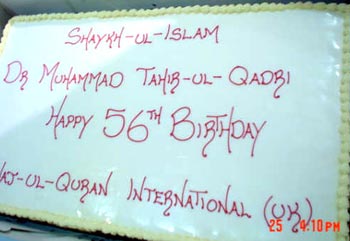 SHAYKH-UL-ISLAM
DR MUHAMMAD TAHIR-UL-QADRI
HAPPY 56TH BIRTHDAY
HAJ-UL-QURAN INTERNATIONAL (UK)
25 4:10PM